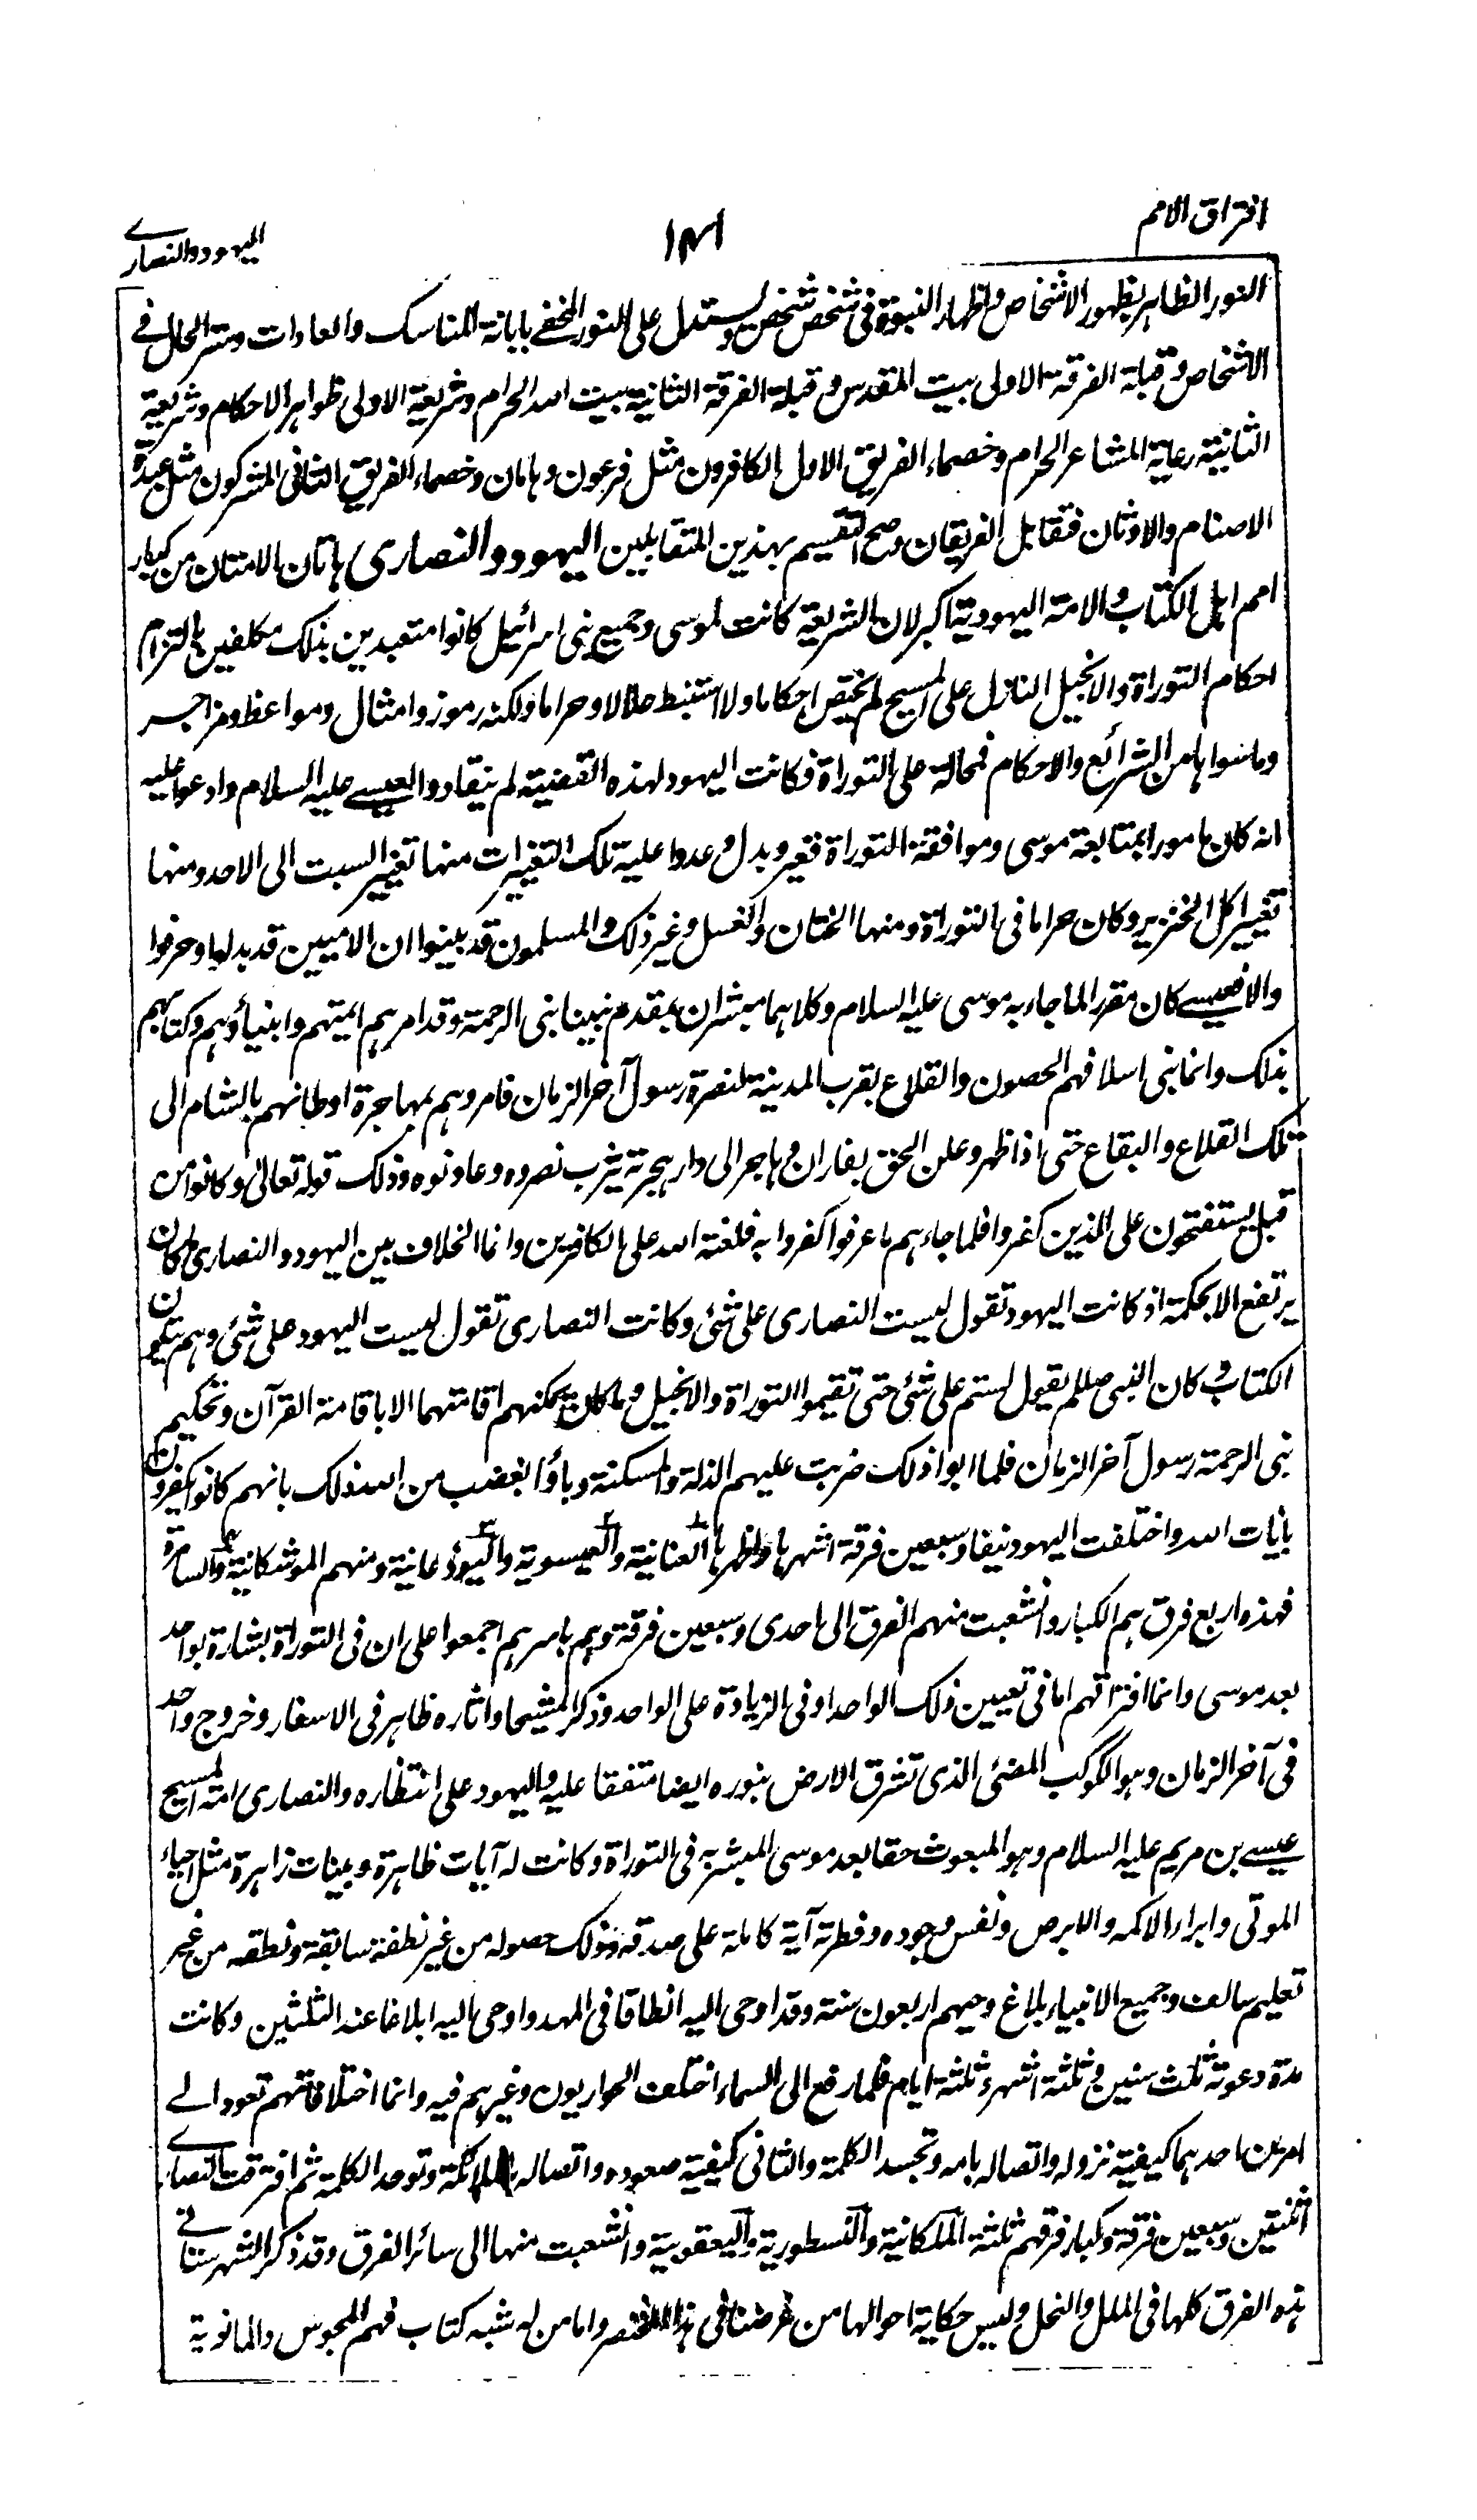 افتراق الامم
١٣١
اليهود والنصارے
النور الظاهر بظهور الاشخاص واظهار النبوة فى شخص شخص ويستدل على النور المخفے بابانة المناسك والعادات وستر الحال فے
الاشخاص وقبلة الفرقة الاولى بيت المقدس وقبلة الفرقة الثانية بيت الله الحرام وشريعة الاولى ظواهر الاحكام وشريعة
الثانية رعاية المشاعر الحرام وخصماء الفريق الاول الكافرون مثل فرعون وهامان وخصماء الفريق الثانى المشركون مثل عبدة
الاصنام والاوثان فتقابل الفريقان وصح التقسيم بهذين المتقابلين اليهود والنصارى هاتان الامتان من كبار
امم اهل الكتاب والامة اليهودية اكبر لان الشريعة كانت لموسى وجميع بنى اسرائيل كانوا متعبدين بذلك مكلفين بالتزام
احكام التوراة والانجيل النازل على المسيح لم يختص احكاما ولا استنبط حلالا وحراما ولكنه رموز وامثال ومواعظ ومزاجر
وما سواها من الشرائع والاحكام فمحالة على التوراة فكانت اليهود لهذه القضية لم ينقادوا لعيسے عليه السلام وادعوا عليه
انه كان مامورا بمتابعة موسى وموافقة التوراة فغير وبدل وعدوا عليه تلك التغيرات منها تغيير السبت الى الاحد ومنها
تغيير اكل الخنزير وكان حراما فى التوراة ومنها الختان والغسل وغير ذلك والمسلمون قد بينوا ان الاميين قد بدلوا وحرفوا
والا فعيسے كان مقررا لما جاء به موسى عليه السلام وكلاهما مبشران بمقدم نبينا نبى الرحمة وقد امرهم ائمتهم وانبياؤهم وكتابهم
بذلك وانما بنى اسلافهم الحصون والقلاع بقرب المدينة لنصرة رسول آخر الزمان فامروهم بمهاجرة اوطانهم بالشام الى
تلك القلاع والبقاع حتى اذا ظهر وعلن الحق بفاران وهاجر الى دار هجرته يثرب نصروه وعاونوه وذلك قوله تعالى وكانوا من
قبل يستفتحون على الذين كفروا فلما جاءهم ما عرفوا كفروا به فلعنة الله على الكافرين وانما الخلاف بين اليهود والنصارى ما كان
يرتفع الا بحكمة اذ كانت اليهود تقول ليست النصارى على شئ وكانت النصارى تقول ليست اليهود على شئ وهم يتلون
الكتاب وكان النبى صللم يقول لستم على شئ حتى تقيموا التوراة والانجيل وما كان يمكنهم اقامتهما الا باقامة القرآن وتحكيم
نبى الرحمة رسول آخر الزمان فلما ابوا ذلك ضربت عليهم الذلة والمسكنة وباؤا بغضب من الله ذلك بانهم كانوا يكفرون
بايات الله واختلفت اليهود نيفا وسبعين فرقة اشهرها واظهرها العنانية والعيسوية واليوذعانية ومنهم الموشكانية والسامرة
فهذه اربع فرق هم الكبار وانشعبت منهم الفرق الى احدى وسبعين فرقة وهم باسرهم اجمعوا على ان فى التوراة بشارة بواحد
بعد موسى وانما افتراقهم اما فى تعيين ذلك الواحد او فى الزيادة على الواحد وذكر المشيحا واثاره ظاهر فى الاسفار وخروج واحد
فى آخر الزمان وهو الكوكب المضئ الذى تشرق الارض بنوره ايضا متفقا عليه واليهود على انتظاره والنصارى امة المسيح
عيسے بن مريم عليه السلام وهو المبعوث حقا بعد موسى المبشر به فى التوراة وكانت له آيات ظاهرة وبينات زاهرة مثل احياء
الموتى وابراء الاكمه والابرص ونفس وجوده وفطرته آية كاملة على صدقه وذلك حصوله من غير نطفة سابقة ونطقه من غير
تعليم سالف وجميع الانبياء بلاغ وحيهم اربعون سنة وقد اوحى اليه انطاقا فى المهد واوحى اليه ابلاغا عند الثلثين وكانت
مدة دعوته ثلث سنين وثلثة اشهر وثلثة ايام فلما رفع الى السماء اختلف الحواريون وغيرهم فيه وانما اختلافاتهم تعود الے
امرين احدهما كيفية نزوله واتصاله بامه وتجسد الكلمة والثانى كيفية صعوده واتصاله بالملائكة وتوحد الكلمة ثم افترقت النصارے
اثنتين وسبعين فرقة وكبار فرقهم ثلثة الملكانية والنسطورية واليعقوبية وانشعبت منها الى سائر الفرق وقد ذكر الشهرستانے
هذه الفرق كلها فى الملل والنحل وليس حكاية احوالها من غرضنا فى هذا المختصر واما من له شبه كتاب فهم المجوس والمانوية